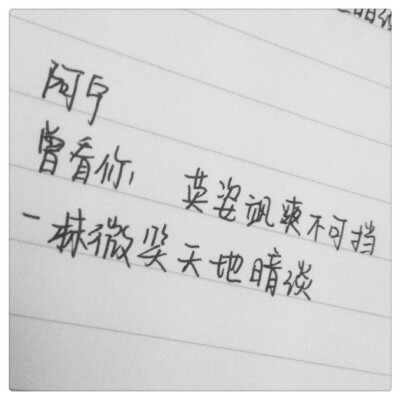 阿宁
曾看你, 英姿飒爽不可挡
一抹微笑天地暗淡